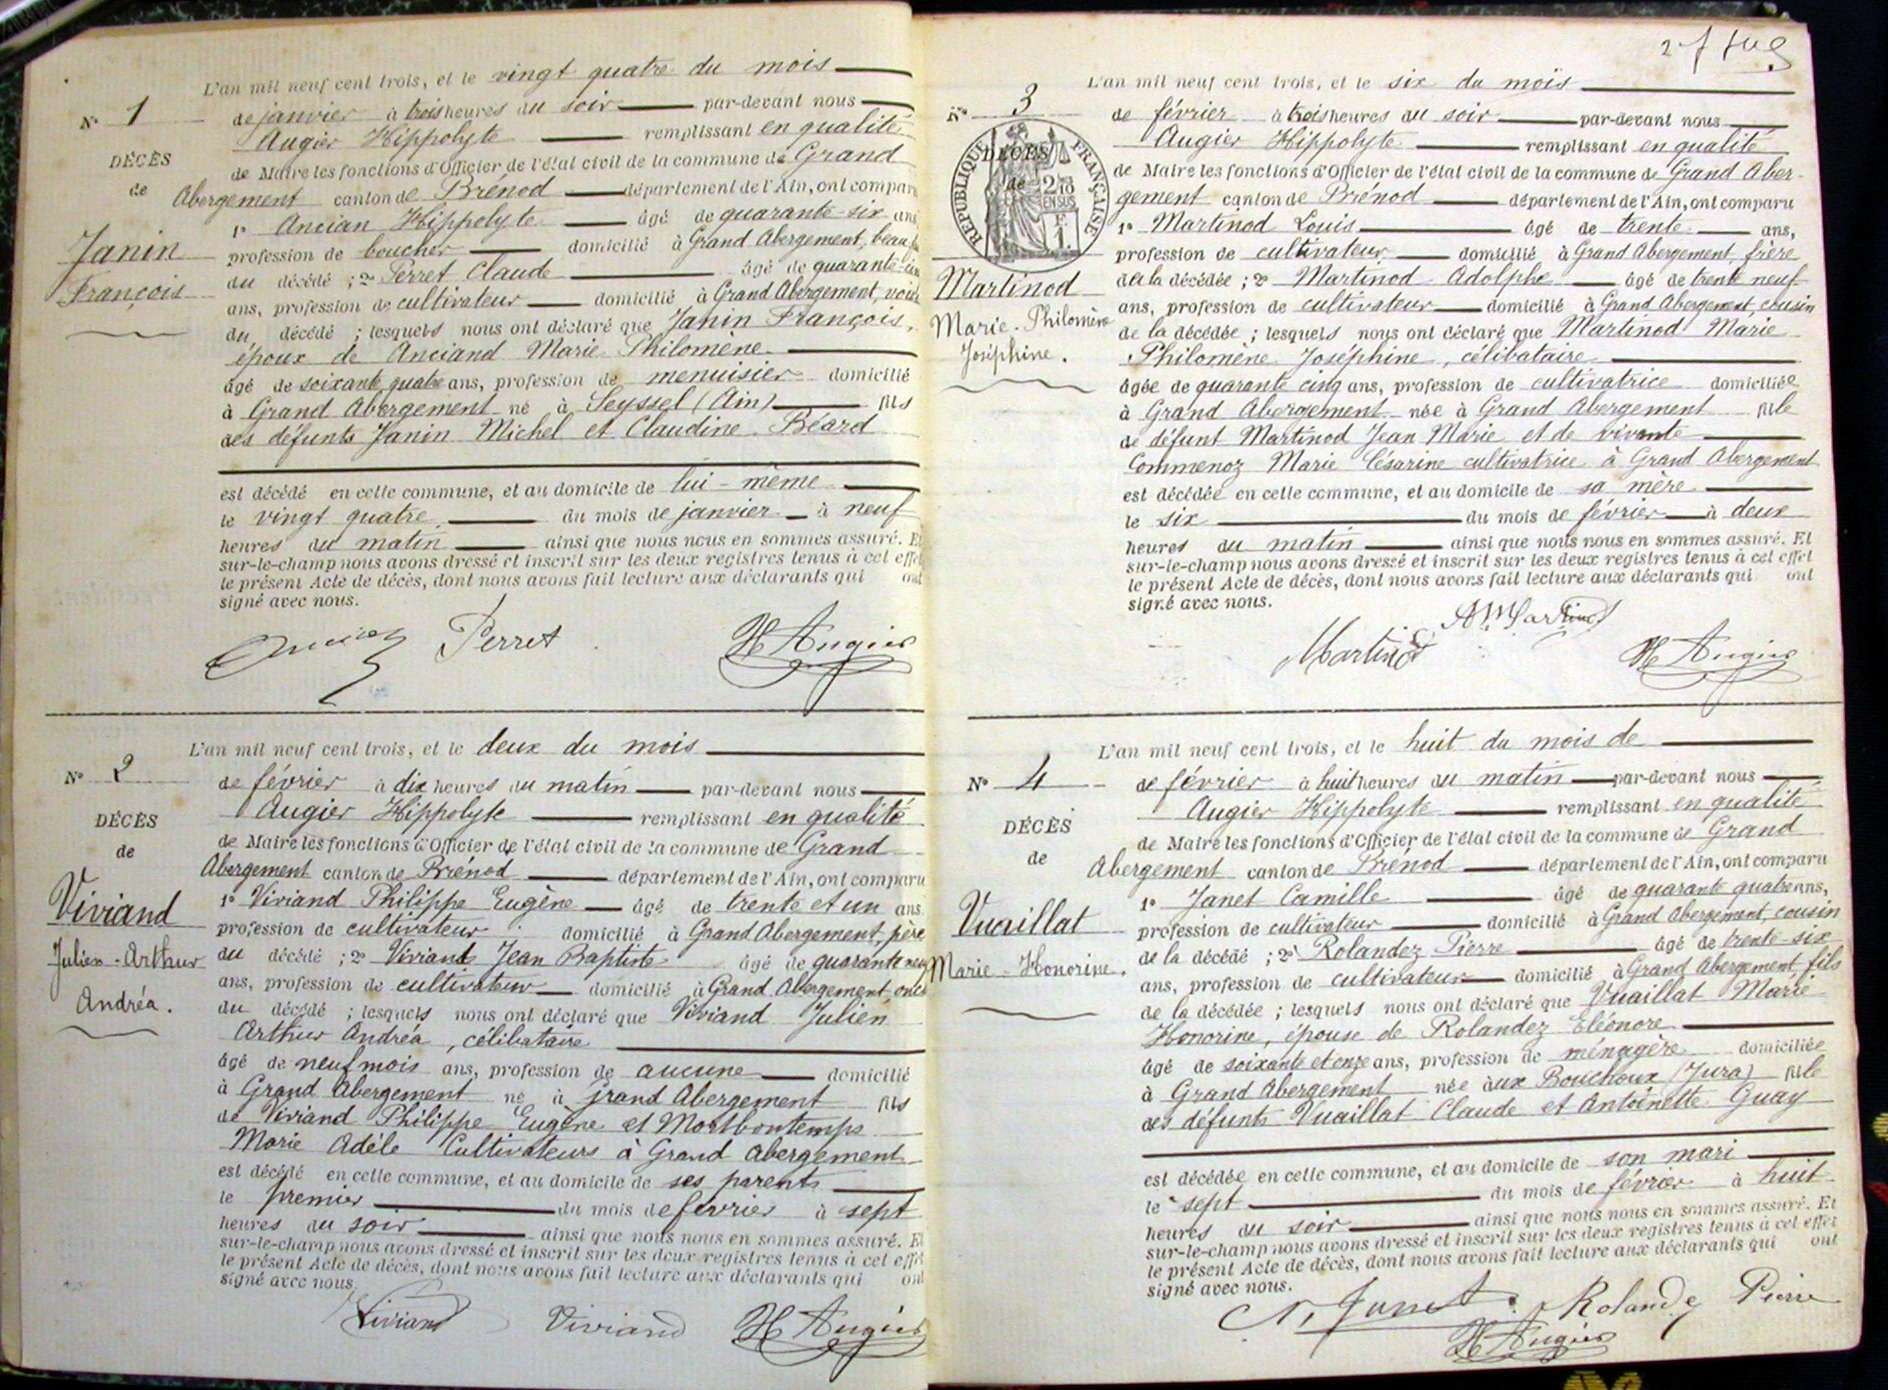 L'an mil neuf cent trois, et le vingt quatre du mois
N° 1
de janvier à trois heures du soir par-devant nous
Augier Hippolyte remplissant en qualité
DÉCÈS
de Maire les fonctions d'Officier de l'état civil de la commune de Grand
de
Abergement canton de Brénod département de l'Ain, ont compar
1° Ancian Hippolyte âgé de quarante six ans
Janin
profession de boucher domicilié à Grand Abergement,
François
du décédé ; 2° Perret Claude âgé de quarante
ans, profession de cultivateur domicilié à Grand Abergement,
du décédé ; lesquels nous ont déclaré que Janin François,
époux de Anciand Marie Philomène
âgé de soixante quatre ans, profession de menuisier domicilié
à Grand Abergement né à Seyssel (Ain) fils
des défunts Janin Michel et Claudine Béard
est décédé en cette commune, et au domicile de lui-même
le vingt quatre du mois de janvier à neuf
heures du matin ainsi que nous nous en sommes assuré. Et
sur-le-champ nous avons dressé et inscrit sur les deux registres tenus à cet effet
le présent Acte de décès, dont nous avons fait lecture aux déclarants qui ont
signé avec nous.
Perret H Augier
L'an mil neuf cent trois, et le deux du mois
N° 2
de février à dix heures du matin par-devant nous
Augier Hippolyte remplissant en qualité
DÉCÈS
de Maire les fonctions d'Officier de l'état civil de la commune de Grand
de
Abergement canton de Brénod département de l'Ain, ont comparu
1° Viviand Philippe Eugène âgé de trente et un ans
Viviand
profession de cultivateur domicilié à Grand Abergement, père
Julien-Arthur
du décédé ; 2° Viviand Jean Baptiste âgé de quarante neuf
ans, profession de cultivateur domicilié à Grand Abergement, oncle
Andréa.
du décédé ; lesquels nous ont déclaré que Viviand Julien
Arthur Andréa, célibataire
âgé de neuf mois ans, profession de aucune domicilié
à Grand Abergement né à grand Abergement fils
de Viviand Philippe Eugène et Montbontemps
Marie Adèle Cultivateurs à Grand Abergement
est décédé en cette commune, et au domicile de ses parents
le premier du mois de février à sept
heures du soir ainsi que nous nous en sommes assuré. Et
sur-le-champ nous avons dressé et inscrit sur les deux registres tenus à cet effet
le présent Acte de décès, dont nous avons fait lecture aux déclarants qui ont
signé avec nous.
Viviand Viviand H Augier
L'an mil neuf cent trois, et le six du mois
N° 3
de février à trois heures du soir par-devant nous
Augier Hippolyte remplissant en qualité
DÉCÈS
de
RÉPUBLIQUE FRANÇAISE
2/10 EN SUS
F 1
de Maire les fonctions d'Officier de l'état civil de la commune de Grand Aber-
gement canton de Brénod département de l'Ain, ont comparu
1° Martinod Louis âgé de trente ans,
profession de cultivateur domicilié à Grand Abergement, frère
Martinod
de la décédée ; 2° Martinod Adolphe âgé de trente neuf
ans, profession de cultivateur domicilié à Grand Abergement, cousin
Marie-Philomène
de la décédée ; lesquels nous ont déclaré que Martinod Marie
Joséphine.
Philomène Joséphine, célibataire
âgée de quarante cinq ans, profession de cultivatrice domiciliée
à Grand Abergement née à Grand Abergement fille
de défunt Martinod Jean Marie et de vivante
Commenoz Marie Césarine cultivatrice à Grand Abergement
est décédée en cette commune, et au domicile de sa mère
le six du mois de février à deux
heures du matin ainsi que nous nous en sommes assuré. Et
sur-le-champ nous avons dressé et inscrit sur les deux registres tenus à cet effet
le présent Acte de décès, dont nous avons fait lecture aux déclarants qui ont
signé avec nous.
A Martinod
Martinod H Augier
L'an mil neuf cent trois, et le huit du mois de
N° 4
de février à huit heures du matin par-devant nous
Augier Hippolyte remplissant en qualité
DÉCÈS
de Maire les fonctions d'Officier de l'état civil de la commune de Grand
de
Abergement canton de Brénod département de l'Ain, ont comparu
1° Janet Camille âgé de quarante quatre ans,
Vuaillat
profession de cultivateur domicilié à Grand Abergement, cousin
de la décédé ; 2° Rolandez Pierre âgé de trente-six
Marie-Honorine.
ans, profession de cultivateur domicilié à Grand Abergement, fils
de la décédée ; lesquels nous ont déclaré que Vuaillat Marie
Honorine, épouse de Rolandez Eléonore
âgé de soixante et onze ans, profession de ménagère domiciliée
à Grand Abergement née aux Bouchoux (Jura) fille
des défunts Vuaillat Claude et Antoinette Guay
est décédée en cette commune, et au domicile de son mari
le sept du mois de février à huit
heures du soir ainsi que nous nous en sommes assuré. Et
sur-le-champ nous avons dressé et inscrit sur les deux registres tenus à cet effet
le présent Acte de décès, dont nous avons fait lecture aux déclarants qui ont
signé avec nous.
Janet Rolandez Pierre
H Augier